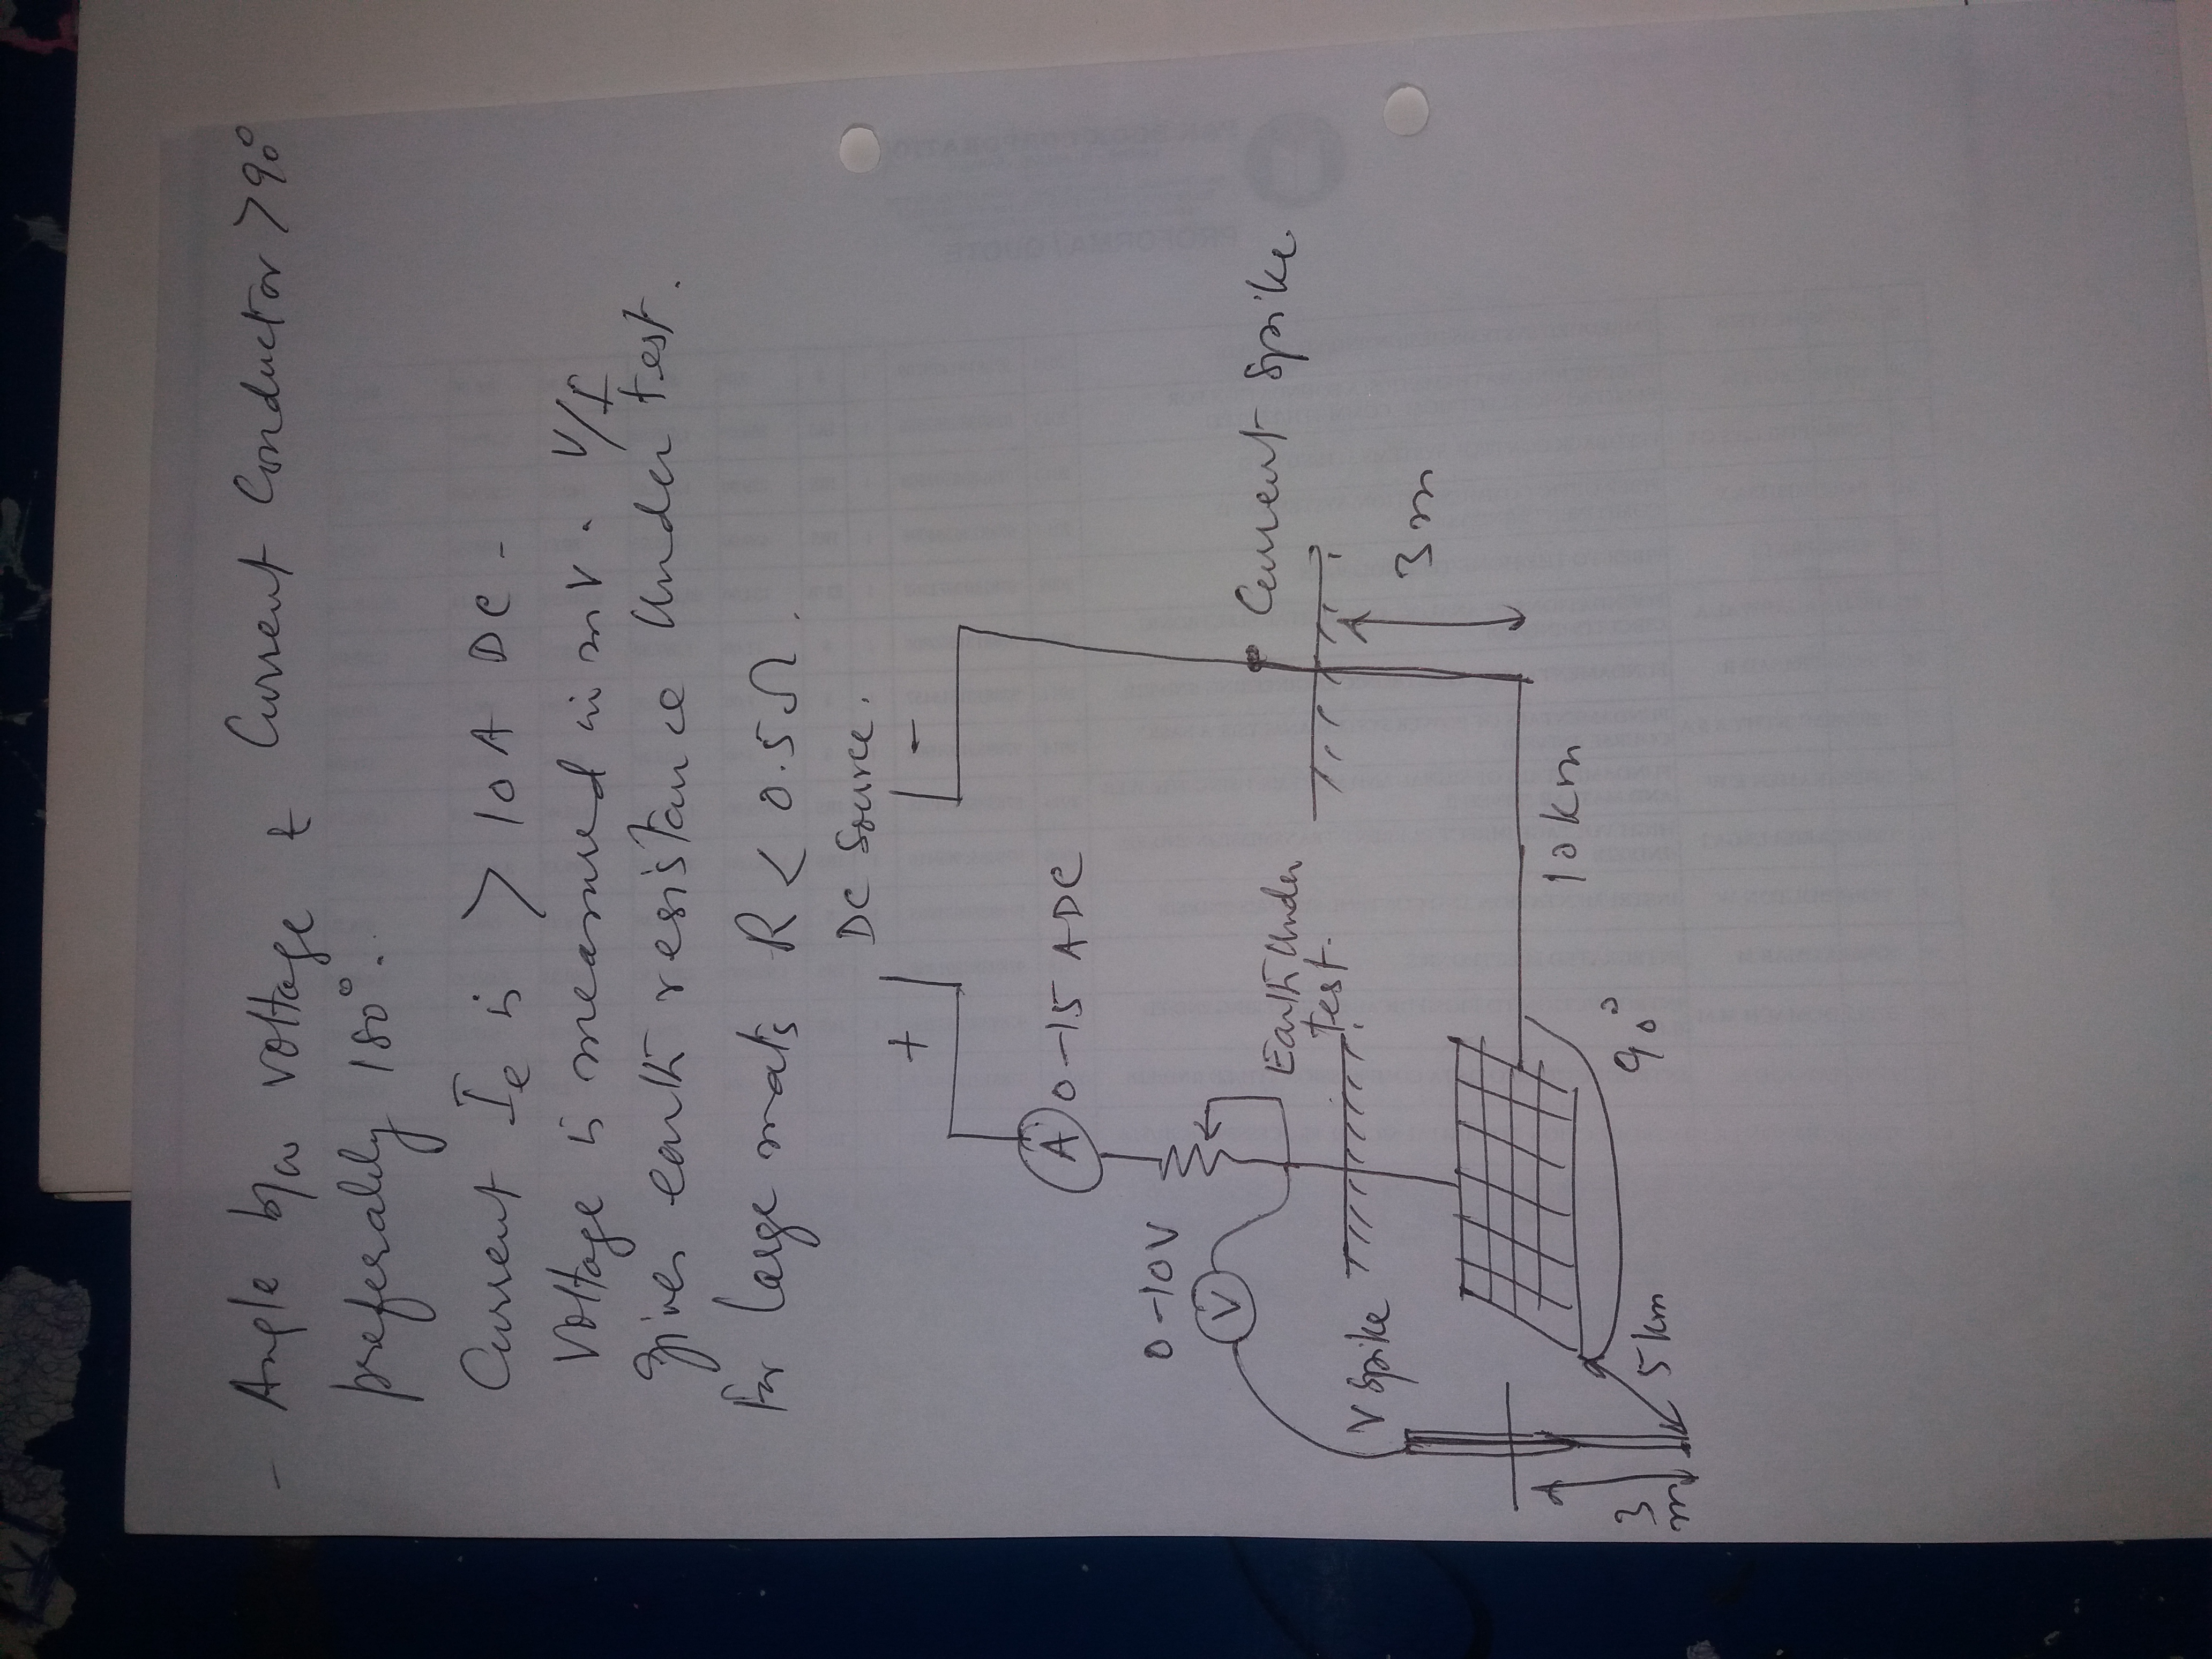 - Angle b/w voltage & Current Conductor > 90°
preferably 180°.
Current Ie is > 10 A DC -
Voltage is measured in mV. V/I
gives earth resistance Under test.
For large mats R < 0.5 Ω.
DC Source.
+ -
A 0-15 ADC
0-10V
V
Earth Under
test.
Current Spike
V Spike
3 m
10 km
90°
5 km
3
m